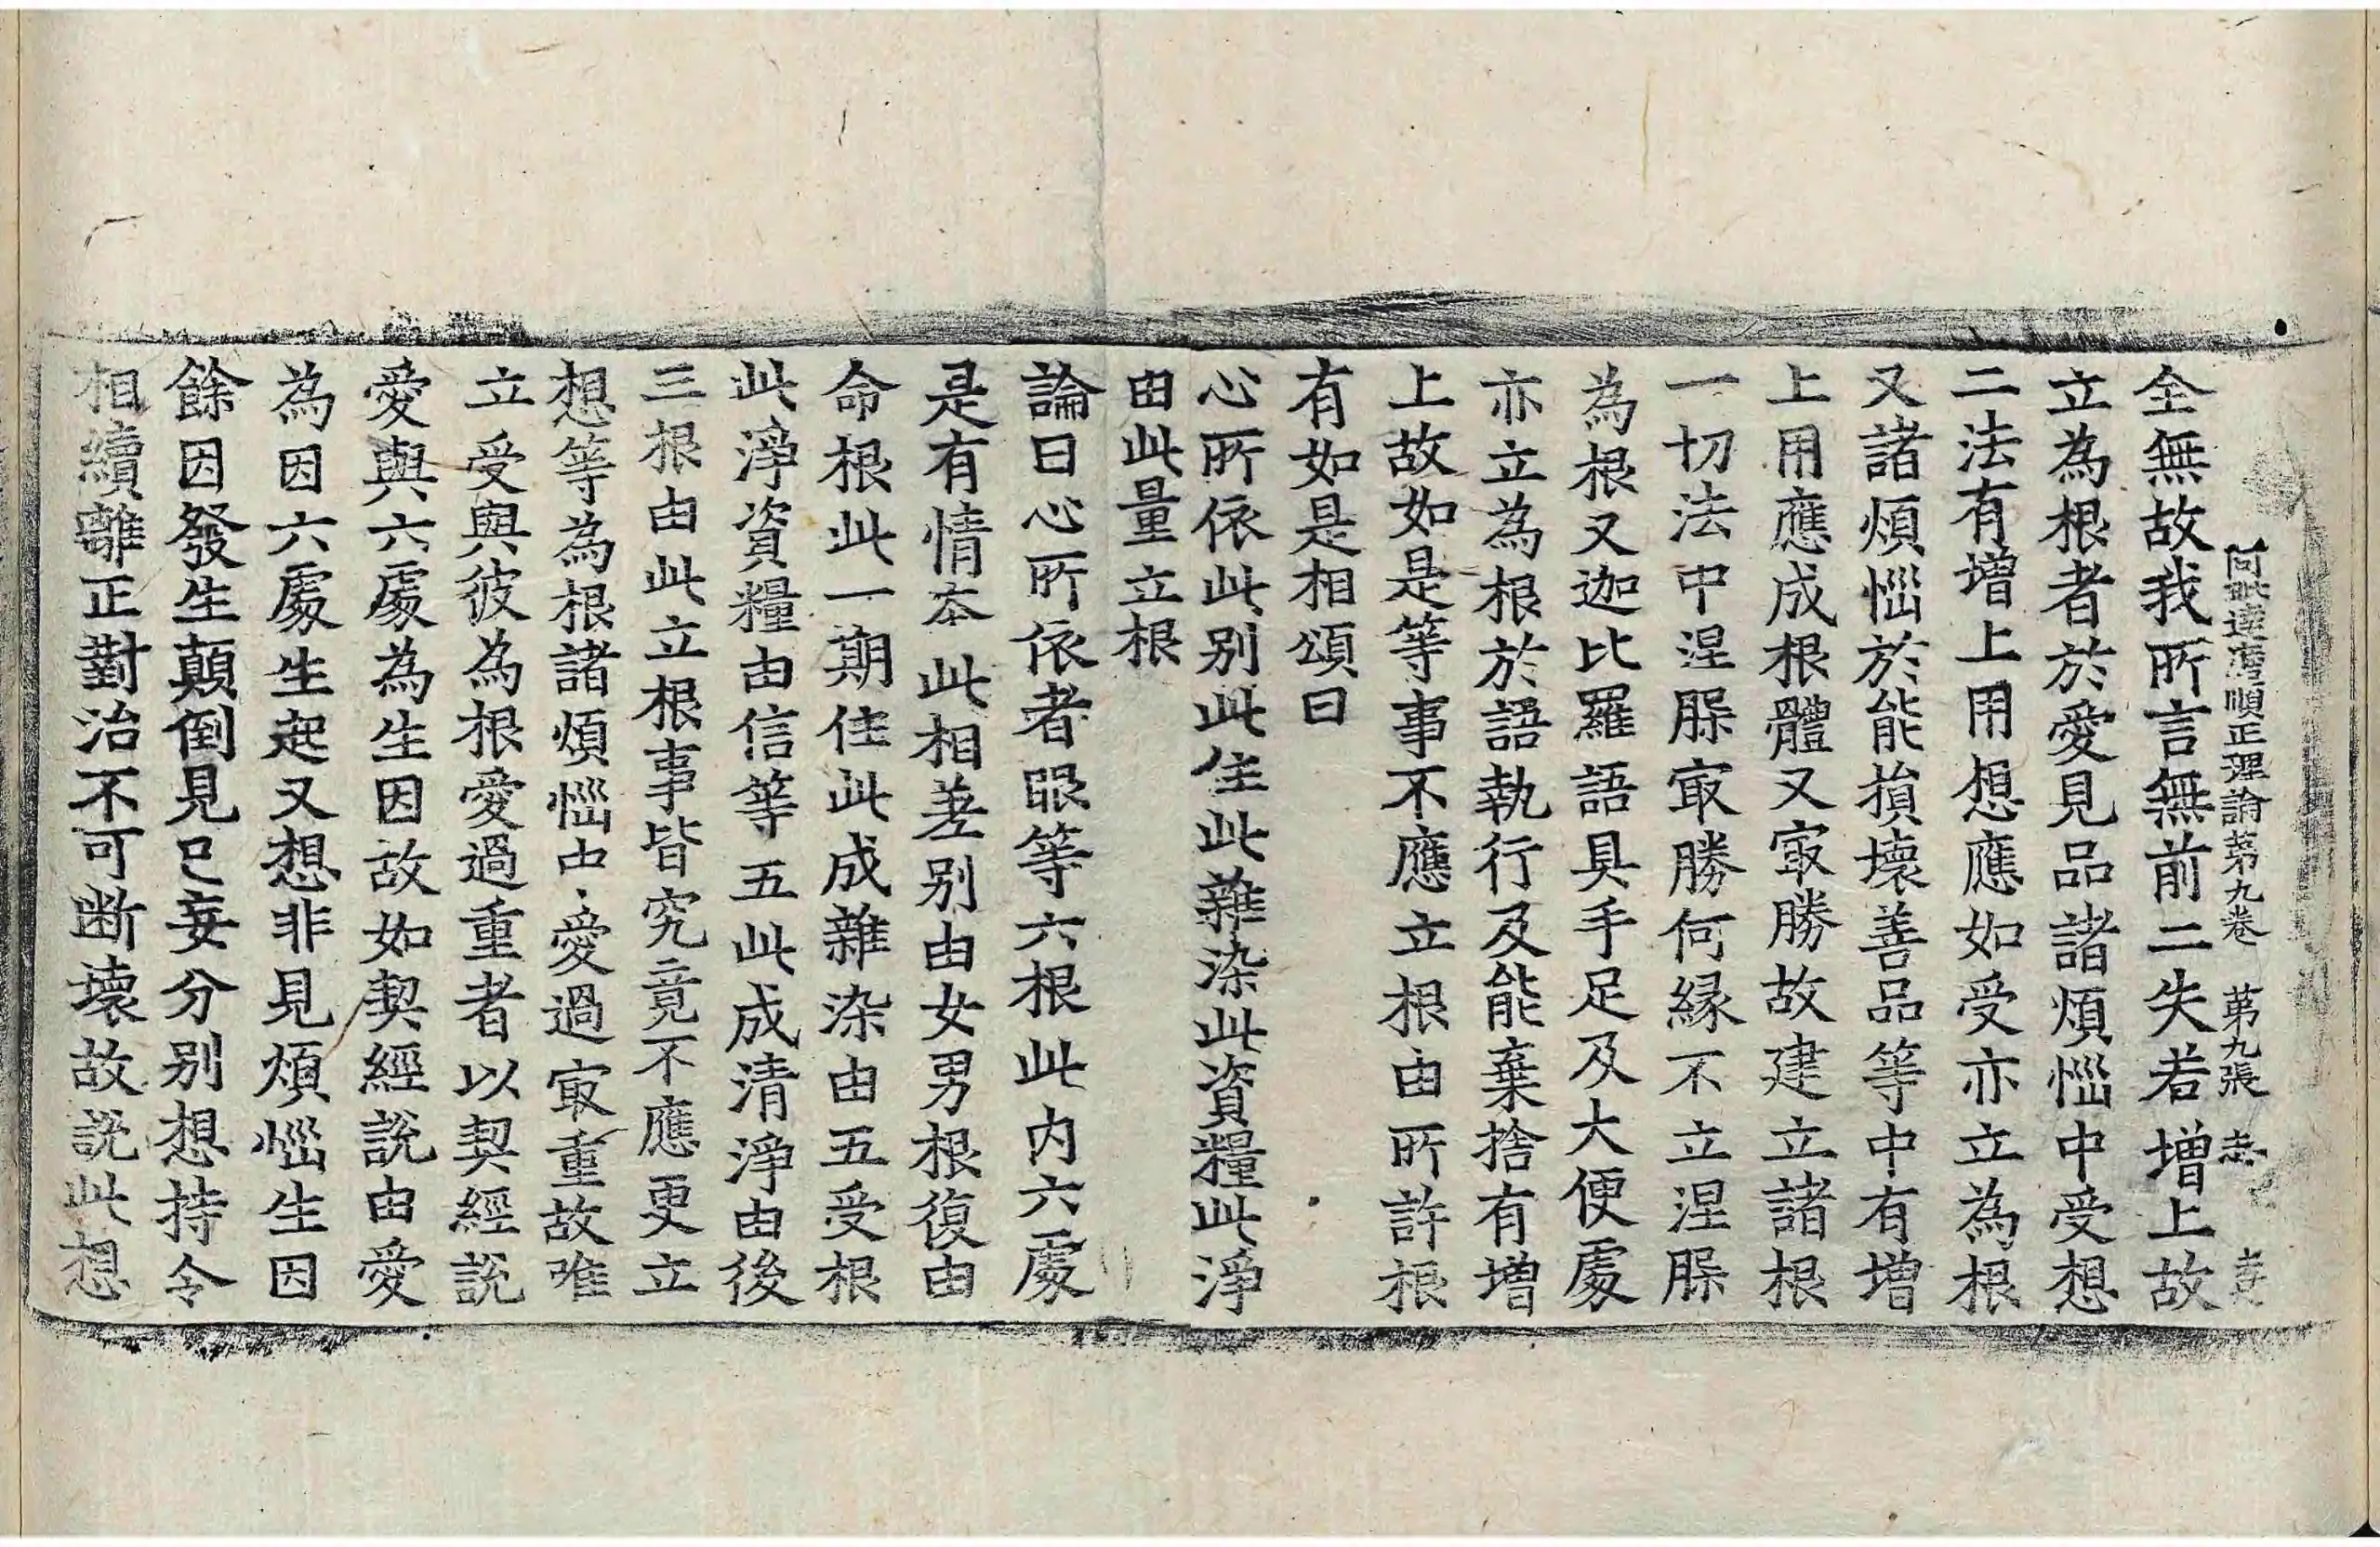 阿毗達磨順正理論第九卷 第九張 志
全無故我所言無前二失若增上故
立為根者於愛見品諸煩惱中受想
二法有增上用想應如受亦立為根
又諸煩惱於能損壞善品等中有增
上用應成根體又㝡勝故建立諸根
一切法中涅槃㝡勝何緣不立涅槃
為根又迦比羅語具手足及大便處
亦立為根於語執行及能棄捨有增
上故如是等事不應立根由所許根
有如是相頌曰
心所依此別 此住此雜染 此資糧此淨
由此量立根
論曰心所依者眼等六根此內六處
是有情本此相差別由女男根復由
命根此一期住此成雜染由五受根
此淨資糧由信等五此成清淨由後
三根由此立根事皆究竟不應更立
想等為根諸煩惱中愛過㝡重故唯
立受與彼為根愛過重者以契經說
愛與六處為生因故如契經說由愛
為因六處生起又想非見煩惱生因
餘因發生顛倒見已妄分別想持令
相續離正對治不可斷壞故說此想